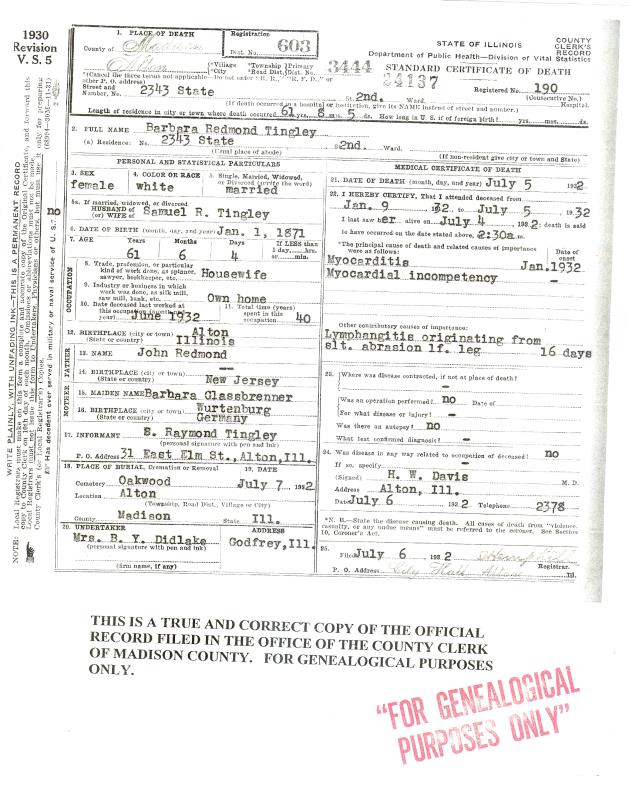 1930
Revision
V. S. 5
1. PLACE OF DEATH
County of Madison
Alton
Registration
Dist. No. 603
*Village *Township Primary
*City *Road Dist. Dist. No. 3444
*(Cancel the three terms not applicable—Do not enter "R. R.," "R. F. D.," or other P. O. address)
Street and
Number, No. 2343 State St. 2nd. Ward.
STATE OF ILLINOIS
COUNTY CLERK'S RECORD
Department of Public Health—Division of Vital Statistics
STANDARD CERTIFICATE OF DEATH
24137
Registered No. 190
(Consecutive No.)
(If death occurred in a hospital or institution, give its NAME instead of street and number.) Hospital.
Length of residence in city or town where death occurred 61 yrs. 8 mos. 5 ds. How long in U. S. if of foreign birth? yrs. mos. ds.
2. FULL NAME Barbara Redmond Tingley
(a) Residence: No. 2343 State St. 2nd. Ward.
(Usual place of abode) (If non-resident give city or town and State)
PERSONAL AND STATISTICAL PARTICULARS
3. SEX
female
4. COLOR OR RACE
white
5. Single, Married, Widowed, or Divorced (write the word)
married
5a. If married, widowed, or divorced
HUSBAND of
(or) WIFE of Samuel R. Tingley
6. DATE OF BIRTH (month, day, and year) Jan. 1, 1871
7. AGE Years Months Days If LESS than 1 day,....hrs. or....min.
61 6 4
OCCUPATION
8. Trade, profession, or particular kind of work done, as spinner, sawyer, bookkeeper, etc. Housewife
9. Industry or business in which work was done, as silk mill, saw mill, bank, etc. Own home
10. Date deceased last worked at this occupation (month and year) June 1932
11. Total time (years) spent in this occupation 40
12. BIRTHPLACE (city or town) Alton
(State or country) Illinois
FATHER
13. NAME John Redmond
14. BIRTHPLACE (city or town) —
(State or country) New Jersey
MOTHER
15. MAIDEN NAME Barbara Glassbrenner
16. BIRTHPLACE (city or town) Wurtenburg
(State or country) Germany
17. INFORMANT S. Raymond Tingley
(personal signature with pen and ink)
P. O. Address 31 East Elm St., Alton, Ill.
18. PLACE OF BURIAL, Cremation or Removal 19. DATE
Cemetery Oakwood July 7 1932
Location Alton
(Township, Road Dist., Village or City)
County Madison State Ill.
20. UNDERTAKER ADDRESS
Mrs. B. Y. Didlake Godfrey, Ill.
(personal signature with pen and ink)
(firm name, if any)
MEDICAL CERTIFICATE OF DEATH
21. DATE OF DEATH (month, day, and year) July 5 1932
22. I HEREBY CERTIFY, That I attended deceased from
Jan. 9 32 to July 5, 1932
I last saw her alive on July 4, 1932; death is said
to have occurred on the date stated above, 2:30a.m.
*The principal cause of death and related causes of importance were as follows:
Date of onset
Myocarditis Jan. 1932
Myocardial incompetency —
Other contributory causes of importance:
Lymphangitis originating from
slt. abrasion lf. leg 16 days
23. Where was disease contracted, if not at place of death?
—
Was an operation performed? no Date of
For what disease or injury? —
Was there an autopsy? no
What test confirmed diagnosis? —
24. Was disease in any way related to occupation of deceased? no
If so, specify —
(Signed) H. W. Davis M. D.
Address Alton, Ill.
Date July 6 1932 Telephone 2378
*N. B.—State the disease causing death. All cases of death from "violence, casualty, or any undue means" must be referred to the coroner. See Section 10, Coroner's Act.
25. Filed July 6 1932
Registrar.
P. O. Address City Hall Alton Ill.
WRITE PLAINLY, WITH UNFADING INK—THIS IS A PERMANENT RECORD
Has decedent ever served in military or naval service of U. S.? no
THIS IS A TRUE AND CORRECT COPY OF THE OFFICIAL
RECORD FILED IN THE OFFICE OF THE COUNTY CLERK
OF MADISON COUNTY. FOR GENEALOGICAL PURPOSES
ONLY.
"FOR GENEALOGICAL
PURPOSES ONLY"